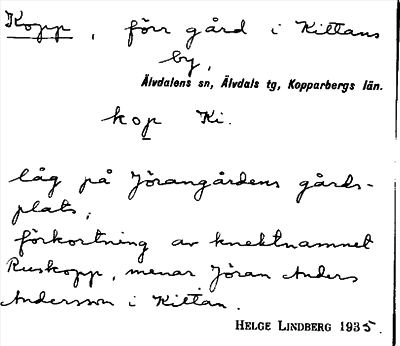 Kopp, förr gård i Kittans
by,
Älvdalens sn, Älvdals tg, Kopparbergs län.
kop Ki.
låg på Jörangårdens gårds-
plats;
förkortning av knektnamnet
Ruskopp, menar Jöran Anders
Andersson i Kittan.
HELGE LINDBERG 1935.